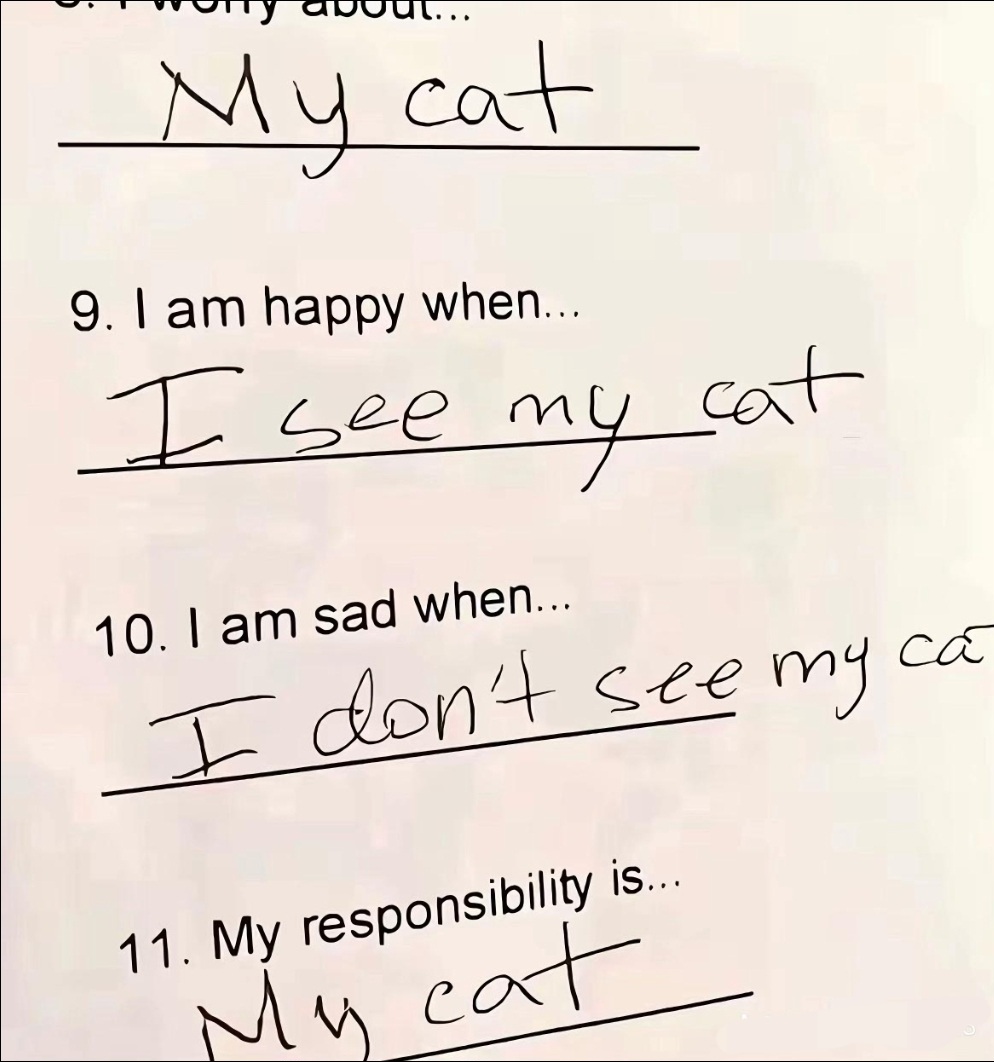 8. I worry about...
My cat
9. I am happy when...
I see my cat
10. I am sad when...
I don't see my ca
11. My responsibility is...
My cat